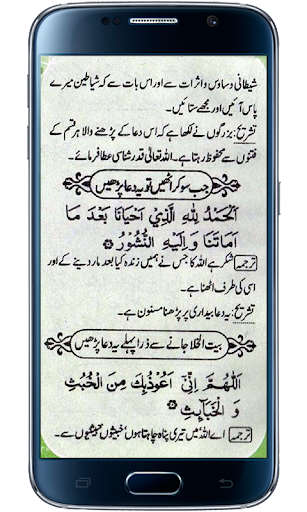 شیطانی وساوس واثرات سے اور اس بات سے کہ شیاطین میرے
پاس آئیں اور مجھے ستائیں۔
تشریح: بزرگوں نے لکھا ہے کہ اس دعا کے پڑھنے والا ہر قسم کے
فتنوں سے محفوظ رہتا ہے۔ اللہ تعالیٰ قدر شناسی عطا فرمائے۔
جب سو کر اٹھیں تو یہ دعا پڑھیں
اَلْحَمْدُ لِلّٰهِ الَّذِیْٓ اَحْیَانَا بَعْدَ مَا
اَمَاتَنَا وَ اِلَیْهِ النُّشُوْرُ
ترجمہ شکر ہے اللہ کا جس نے ہمیں زندہ کیا بعد مار دینے کے اور
اسی کی طرف اٹھنا ہے۔
تشریح: یہ دعا بیداری پر پڑھنا مسنون ہے۔
بیت الخلا جانے سے ذرا پہلے یہ دعا پڑھیں
اَللّٰهُمَّ اِنِّیْٓ اَعُوْذُبِكَ مِنَ الْخُبُثِ
وَ الْخَبَآئِثِ
ترجمہ اے اللہ میں تیری پناہ چاہتا ہوں خبیثوں خبیثنیوں سے۔